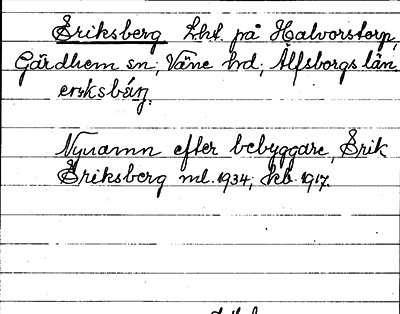 Eriksberg Lht. på Halvorstorp,
Gärdhem sn; Väne hd; Älfsborgs län.
eriksbárj.
Nynamn efter bebyggare, Erik
Eriksberg ml. 1934; kb. 1917.